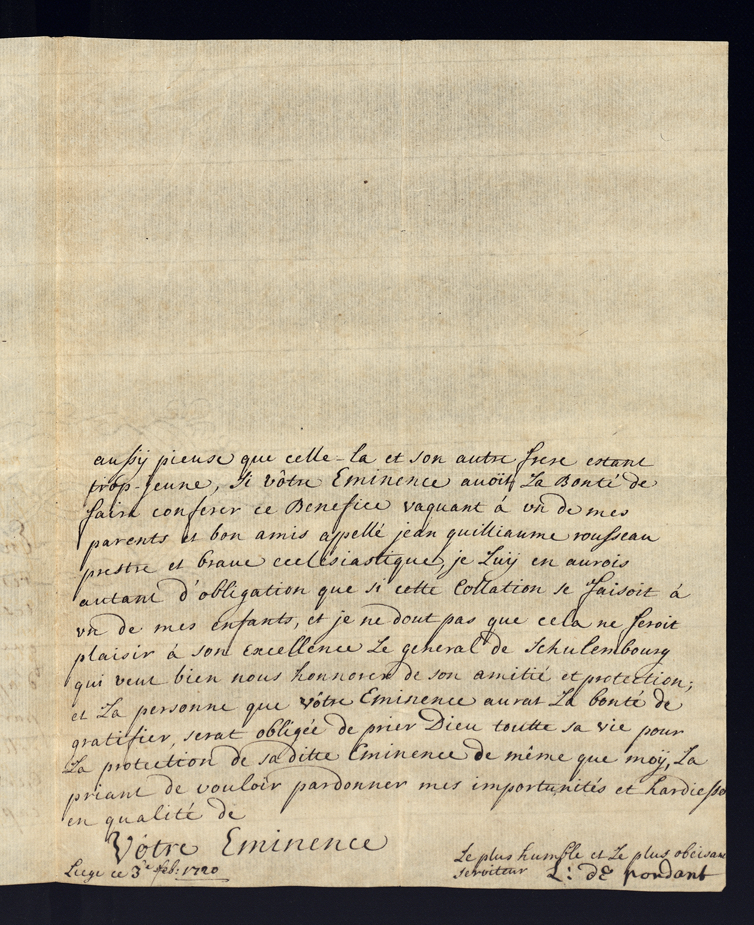 aussÿ pieuse que celle-la et son autre frere estant
trop-jeune, si vôtre Eminence auoit La Bonté de
faire conferer ce Benefice vaquant à vn de mes
parents et bon amis appellé jean guilliaume rousseau
prestre et braue ecclesiastique, je Luÿ en aurois
autant d'obligation que si cette Collation se faisoit à
vn de mes enfants, et je ne dout pas que cela ne feroit
plaisir à son Excellence Le general de Schulembourg
qui veut bien nous honnorer de son amitié et protection;
et La personne que vôtre Eminence aurat La bonté de
gratifier, serat obligée de prier Dieu toutte sa vie pour
La protection de sa ditte Eminence de même que moÿ, La
priant de vouloir pardonner mes importunités et hardiesse
en qualité de
Vôtre Eminence
Liege ce 3e feb: 1720
Le plus humble et Le plus obeisant
serviteur L: dE pondant